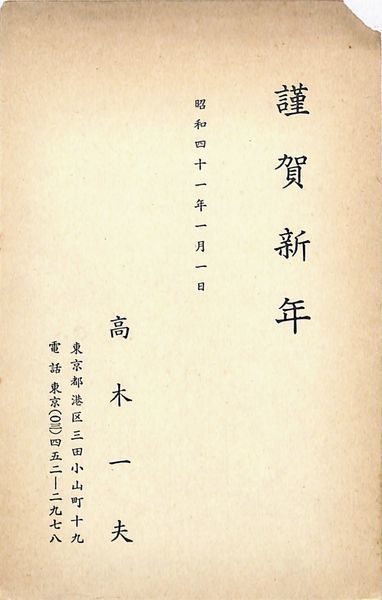 謹賀新年
昭和四十一年一月一日
高木一夫
東京都港区三田小山町十九
電話東京(〇三)四五二―二九七八